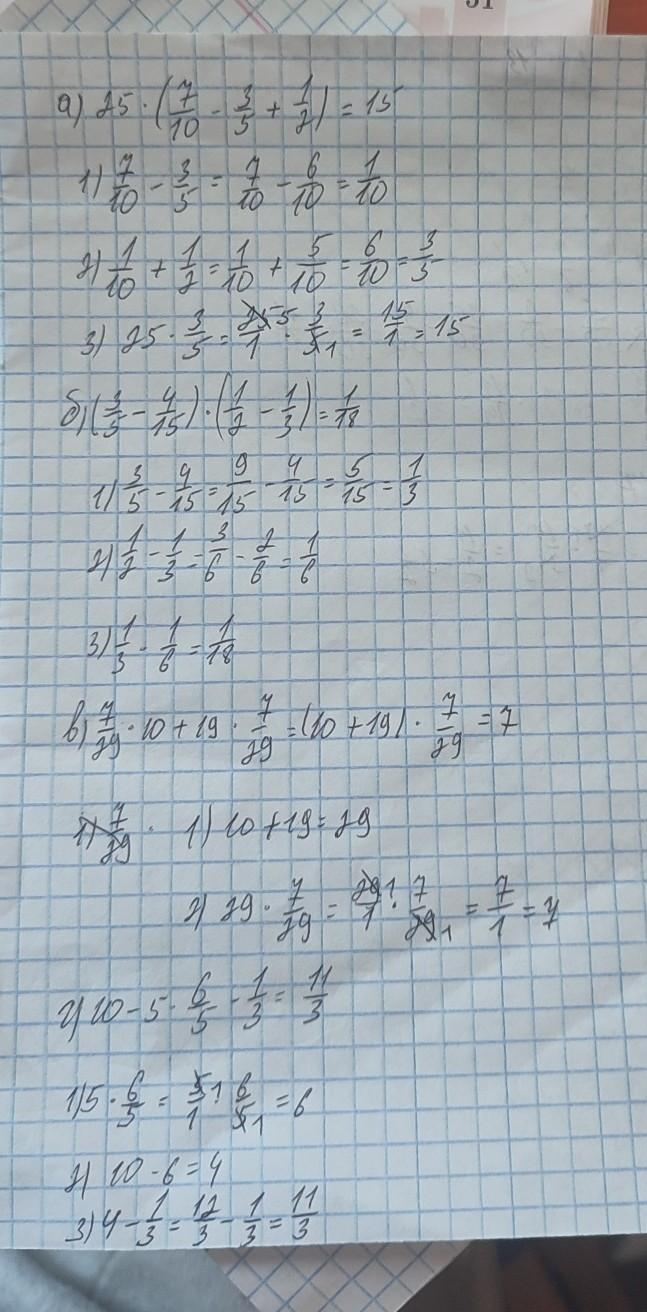 а) 25 · (7/10 - 3/5 + 1/2) = 15
1) 7/10 - 3/5 = 7/10 - 6/10 = 1/10
2) 1/10 + 1/2 = 1/10 + 5/10 = 6/10 = 3/5
3) 25 · 3/5 = 25 5/1 · 3/5 1 = 15/1 = 15
б) (3/5 - 4/15) · (1/2 - 1/3) = 1/18
1) 3/5 - 4/15 = 9/15 - 4/15 = 5/15 = 1/3
2) 1/2 - 1/3 = 3/6 - 2/6 = 1/6
3) 1/3 · 1/6 = 1/18
в) 7/29 · 10 + 19 · 7/29 = (10 + 19) · 7/29 = 7
1) 7/29 · 1) 10 + 19 = 29
2) 29 · 7/29 = 29 1/1 · 7/29 1 = 7/1 = 7
г) 10 - 5 · 6/5 - 1/3 = 11/3
1) 5 · 6/5 = 5 1/1 · 6/5 1 = 6
2) 10 - 6 = 4
3) 4 - 1/3 = 12/3 - 1/3 = 11/3